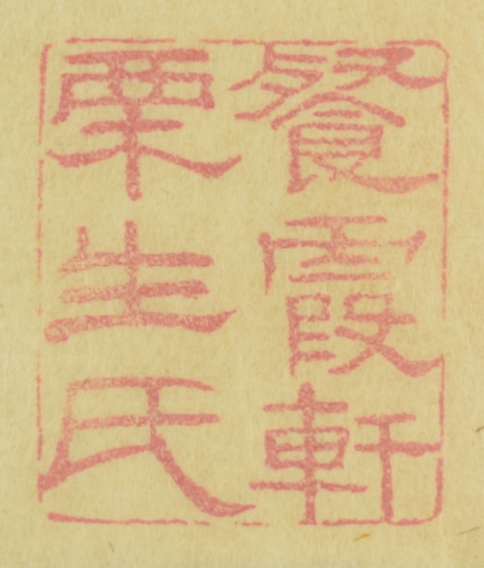 餐霞軒
栗生氏